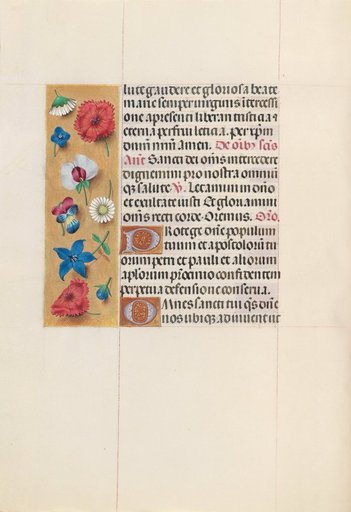 lute gaudere et gloriosa beate
marie semper virginis intercessi
one a presenti liberari tristicia et
eterna perfrui leticia. per xpm
dnm nrm amen. De oibus scis
Ant Sancti dei oms intercedere
dignemini pro nostra omniu
q̃ salute V. Letamini in dno
et exultate iusti Et gloriamini
oms recti corde. Oremus. Oro.
Protege dne populum
tuum et apostolorum tu
orum petri et pauli et aliorum
aplorum patrocinio confidentem
perpetua defensione conserua.
Omnes sancti tui qs dne
nos ubiq adiuuent ut